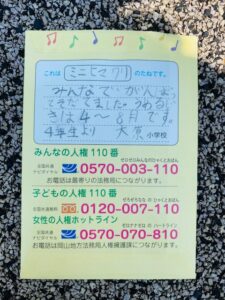 これは ミニヒマワリ のたねです。
みんなで がんばっ
てそだてました。うめる
きは4〜8月です。
4年生より 大原 小学校
みんなの人権110番
ゼロゼロみんなのひゃくとおばん
全国共通
ナビダイヤル 0570-003-110
お電話は最寄りの法務局につながります。
子どもの人権110番
ぜろぜろななの ひゃくとおばん
全国共通無料 0120-007-110
女性の人権ホットライン
ゼロナナゼロの ハートライン
全国共通
ナビダイヤル 0570-070-810
お電話は岡山地方法務局人権擁護課につながります。